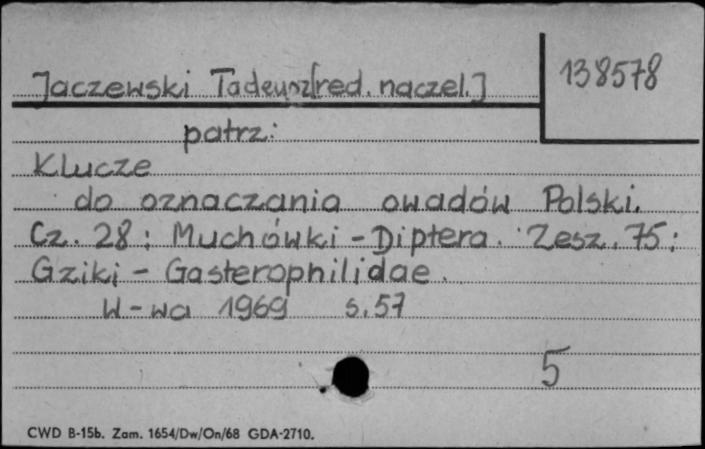 Jaczewski Tadeusz[red. naczel.]
138578
patrz:
Klucze
do oznaczania owadów Polski.
Cz. 28: Muchówki - Diptera. Zesz. 75:
Gziki - Gasterophilidae.
W-wa 1969 s. 57
5
CWD B-15b. Zam. 1654/Dw/On/68 GDA-2710.